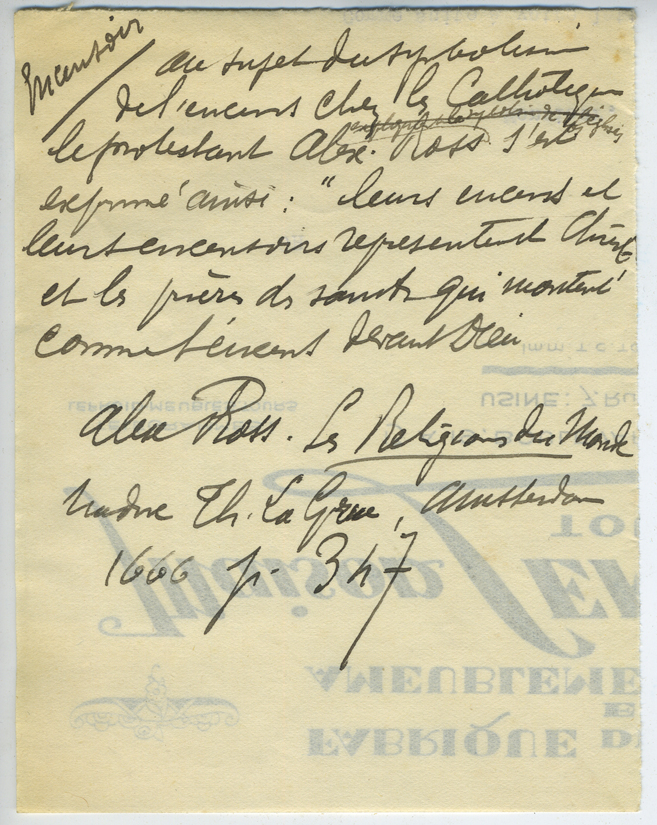 Encensoir
au sujet du symbolisme
de l'encens chez les Catholiques
le protestant Alex. Ross s'est
exprimé ainsi : "leurs encens et
leurs encensoirs representent Christ
et les prières des saints qui montent
comme l'encens devant Dieu
Alex Ross. Les Religions du Monde
traduc Th. La Grue, Amsterdam
1666 p. 347
IMM TOTO
USINE: 7 RU
TOU
Maison
AMEUBLEME
E
FABRIQUE D